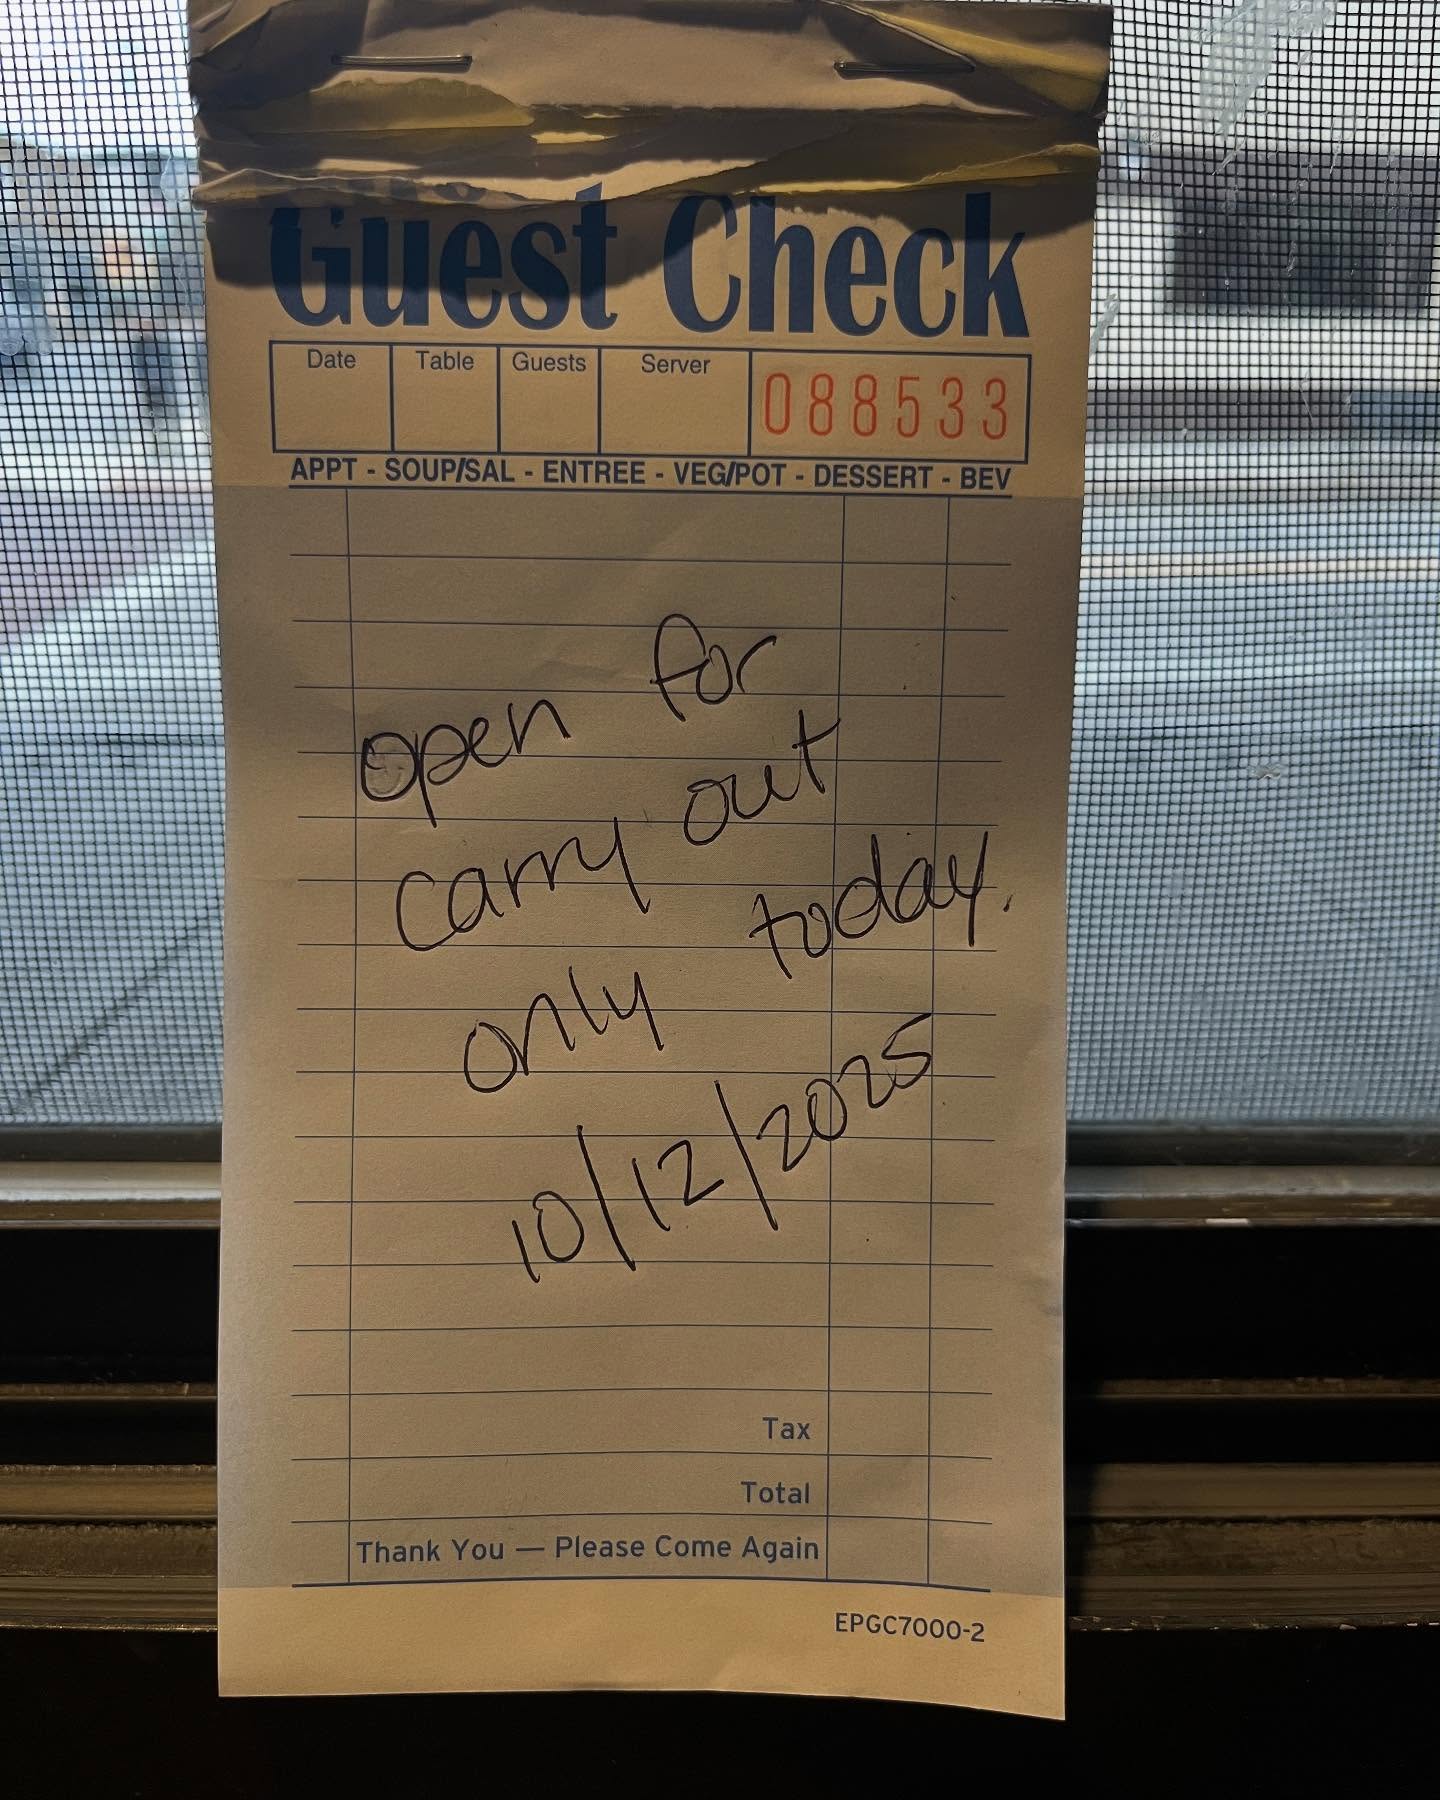 Guest Check
Date Table Guests Server 088533
APPT - SOUP/SAL - ENTREE - VEG/POT - DESSERT - BEV
open for
carry out
only today.
10/12/2025
Tax
Total
Thank You — Please Come Again
EPGC7000-2